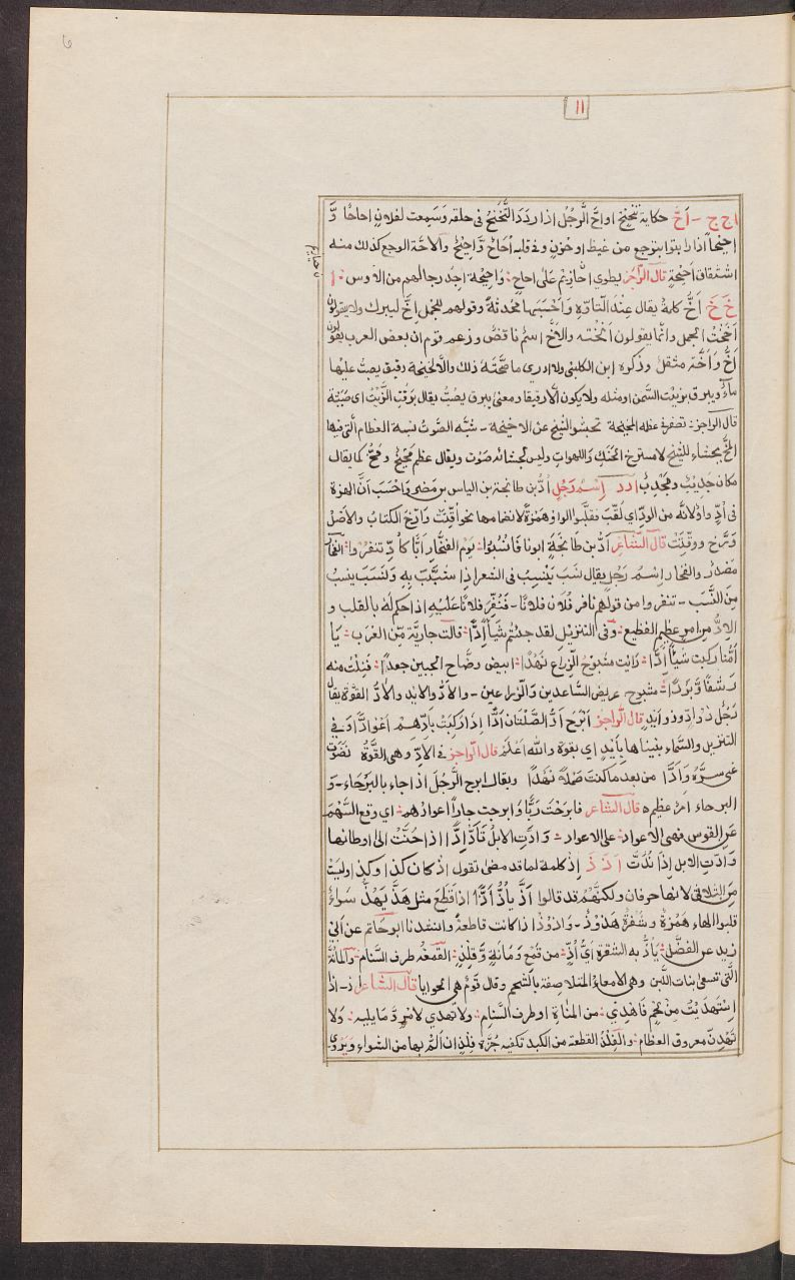 ١١
ا ح ح – اَحَّ حكاية تنحنح اواحَّ الرجُل اذا ردَدَ التَّنَحْنُحَ فى حلقه وَسَمِعت لفلانٍ احاحًا وَّ
احيْحاً اذا رايته يتوجع من غيظ او حُزنٍ وفى قلبه اُحَاحٌ وَّاَحِيْحٌ والاحّة الوجع كذلك منه
اشتقاق اُحَيحة قال الرّاجز يطوي الحازيم على احاح : وَاُحيْحة احدُ رجالهم من الاوس : ا
خَ خَ اَخَّ كلمةٌ يقال عِنْدَ التاوّه وَاَحْسَبُها مُحْدثةً وقولهم للجمل اِخَّ ليبرك ولا يقولون
اَخَخْتُ الجمل وانّما يقولون اَنَخْته والاَخُّ اسمٌ ناقصٌ وزعم قوم ان بعض العرب يقولون
اَخٌّ وَاَخَّة مثقل وذكره ابن الكلبى ولا ادرى ما صحَّتهُ ذلك والاَخيْخة دقيق يصبُّ عليها
ماءٌ ويبرق بزيت السَّمن اومثله ولا يكون اِلّا رقيقا ومعنى يبرق يصبُّ يقال برقت الزَّيْتَ اى صببته
قال الراجز : تصفر فى عظمه المخيخة تجشُّو الشيخ عن الاخيخة – شبَّه الصَّوتَ لشبه العظام الَّتى فيها
المخُّ بجشاء الشيخ لانه مسترخ الحَنَكِ واللهوات وليس لجشائه صَوْت ويقال عظم مَخِيْخٌ ومُمخٌّ كما يقال
مكان جَدِيْبٌ ومُجْدِبٌ ا د د اِسْمُ رَجُلٍ اُدُّ بن طابخة بن الياس بن مضر وَاحْسَبُ اَنَّ الهزة
فى اُدٍّ واوٌ لانَّه من الودِّ اى لحُبِّ فقلبوا الواو هَمْزةً لانضمامها نحو اُقِّتَتْ وَاُرِّخ الكتابُ والاَصْلُ
وُرِّخ ووُقِّتَتْ قال الشاعر اُدُّ بن طابخة ابونا فَانْسُبُوا : يَوْم الفخَّار اَبًا كاُدٍّ تنفروا : الفخار
مَصْدر والفخار اِسْمُ رَجُل يقال نسَبَ يَنْسِبُ فى الشعر اِذا شَبَّبَ بِهِ وَنَسَبَ ينسبُ
مِنَ النَّسَب – تنفروا من قولهم نافر فُلان فلانًا – فَنُفِّرَ فلانًا عَلَيْهِ اِذا حكم لهُ بالقلب و
الاِدُّ من امر عظيم الفظيع : وَفى التنزيل لقد جئتم شَياًْ اِدًّا : قالت جاريَة مِّن العَرَب : يَا
اُمَّنا ركبت شياً اِدًّا : رَايت مشبوح الذِّراع نَهْدًا : ابيض وضَّاح الجبين جعدًا : فَنِلْت منه
رَشفًا وَّبَردًا : مشبوح عريض السَّاعدين والذّراعين – والاَدُّ والايد والآدُ القوّة يقال
رَجُل ذُوْ ادٍ وذو اَيْدٍ قال الرّاجز اَبْرَح ادُّ الصَّلَتان اَدًّا اِذْ رَكِبَتْ بِاَدِّهِمْ اَعْوَادًا وَفى
التنزيل والسَّماء بنيناها بِاَيْدٍ اي بقوة والله اعْلم قال الرّاجز فى الادِّ وهى القوَّةُ نَضَوْت
عنى شِرَّةً وَاَدًّا من بعد ماكنت صُمُلَّا نَهْدًا ويقال ابرح الرُّجُل اذا جاء بالبَرْحَاء – وَ
البرحاء امرٌ عظيم ٥ قال الشاعر فابرَحْتَ ربًّا وابرحت جاراً اعوادهم : اى وقع السَّهْمَ
عن القوس فهى الاَعواد : على الاعواد – وَادَّتِ الابلُ تَاَدُّ اِدًّا اذا حَنَّتْ الى اوطانها
وَادّتِ الابل اِذَا نُدَّتْ ا ذ ذ اِذ كلمة لما قد مضى تقول اذ كان كذا وكذا وليسَتْ
مِن الثلاثى لانها حرفان ولكنَّهُم قد قالوا اَذَّ يأُذُّ اَذًّا اذا قَطَعَ مثل هَذَّ يَهُذُّ سَواءٌ
قلبوا الهاء هَمْزةً وشَفْرةٌ هَذوْذٌ – وَاَذوْذٌ اذا كانت قاطعةً وانشدنا ابو حَاتم عن ابى
زيد عن المفضّل : يَاُذُّ به الشفرة اىُّ اَذٍّ : من قَمَع وَمَأنَةٍ وَّفِلْذٍ : القَمَعةُ طرف السَّنام – والمأنَةُ
الَّتى تسمى بنات اللَّبن وهى الامعاء المتلاصقة بالشحم وقال قَوْمٌ هى الحوايا قال الشاعر اذ – اذا
اِسْتَهدَيْتَ مِنْ لَحْمٍ فَاهْدِي : من المناة او طرف السَّنام : ولا تَهدي لامٍر وَّمَا يليه : وَلا
تَهْدِنَّ معروق العظام : والفِلْذُ القطعة من الكبد تكفيه حُزَّةُ فِلْذٍ ان اَلَمَّ بها من الشواء وَيَرْوى